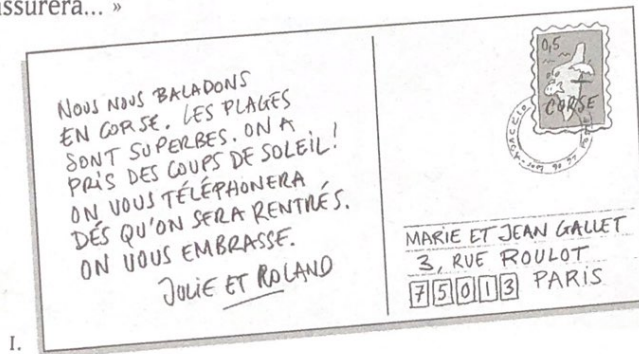 assurera... »
NOUS NOUS BALADONS
EN CORSE. LES PLAGES
SONT SUPERBES. ON A
PRIS DES COUPS DE SOLEIL!
ON VOUS TÉLÉPHONERA
DÉS QU'ON SERA RENTRÉS.
ON VOUS EMBRASSE.
JOLIE ET ROLAND
0,5
CORSE
AJACCIO
MARIE ET JEAN GALLET
3, RUE ROULOT
75013 PARIS
I.